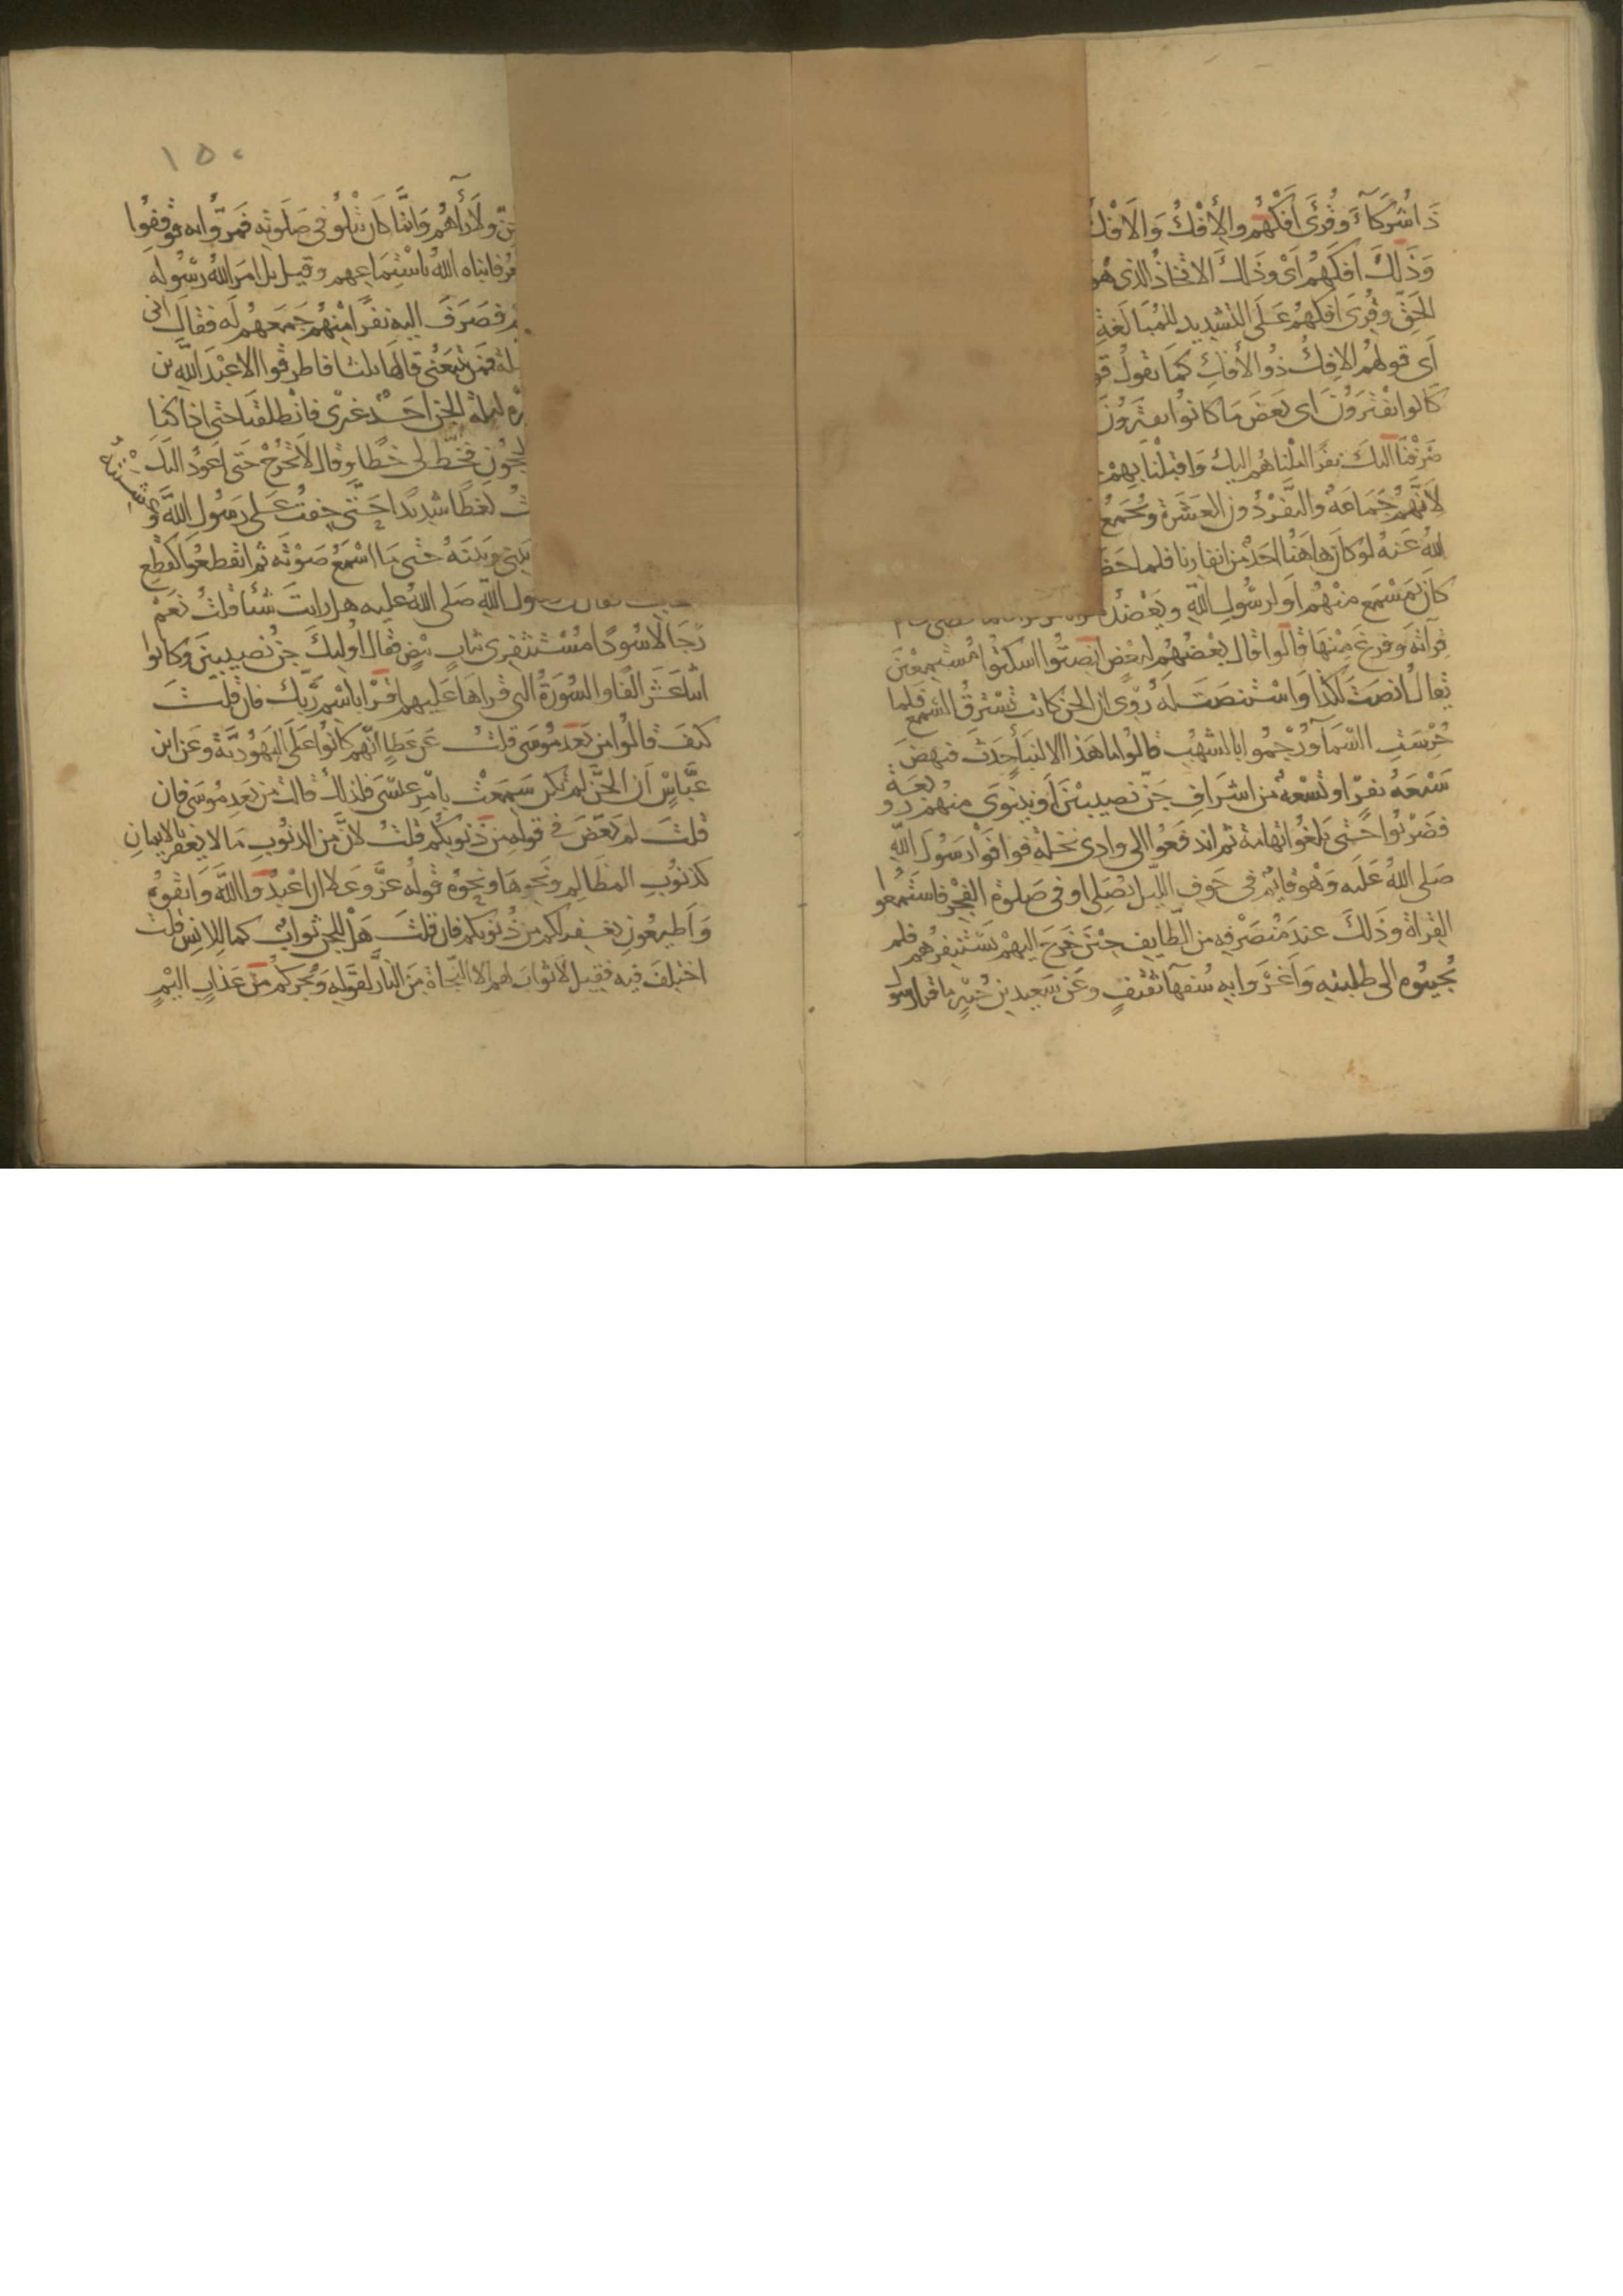 ذا شركاء وقرئ افكهم والأفك والافك
وذلك افكهم اى وذلك الاتخاذ الذى هو
الحق وقرئ افكهم على التشديد للمبالغة
اى قولهم الافك ذو الافك كما تقول قو
كانوا يفترون اى بعض ما كانوا يفترون
صرفنا اليك نفرا املناهم اليك واقبلنا بهم
لانهم جماعة والنفر دون العشرة ويجمع
الله عنه لو كان هاهنا احد من انفارنا فلما حض
كان يسمع منهم او لرسول الله ويعضده
قراته وفرغ منها قالوا قال بعضهم لبعض انصتوا اسكتوا مستمعين
يقال انصت لكذا واستنصت له روى ان الجن كانت تسترق السمع فلما
حرست السماء ورجموا بالشهب قالوا ما هذا الا لنبأ حدث فنهض
سبعة نفر او تسعة من اشراف جن نصيبين او نينوى منهم زوبعة
فضربوا حتى بلغوا تهامة ثم اندفعوا الى وادى نخلة فوافوا رسول الله
صلى الله عليه وهو قائم فى جوف الليل يصلى او فى صلوة الفجر فاستمعوا
القراة وذلك عند منصرفه من الطايف حين خرج اليهم يستنفرهم فلم
يجيبوه الى طلبته واغروا به سفهآ ثقيف وعن سعيد بن جبير ما قرا رسو
١٥٠
جن ولا رأهم وانما كان يتلو فى صلوته فمروا به فوقفوا
فانباه الله باستماعهم وقيل بل امر الله رسوله
فصرف اليه نفرا منهم جمعهم له فقال انى
فمن يتبعنى قالها ثلثا فاطرقوا الا عبد الله بن
ليلة الجن احد غيرى فانطلقنا حتى اذا كنا
فخط لى خطا وقال لا تخرج حتى اعود اليك
لغطا شديدا حتى خفت على رسول الله
بينى وبينه حتى ما اسمع صوته ثم انقطعوا كقطع
الله صلى الله عليه هل رايت شئا قلت نعم
رجالا سودا مستثفرى ثياب بيض فقال اوليك جن نصيبين وكانوا
اثنا عشر الفا والسورة التى قراها عليهم اقرا باسم ربك فان قلت
كيف قالوا من بعد موسى قلت عن عطاء انهم كانوا على اليهودية وعن ابن
عباس ان الجن لم تكن سمعت بامر عيسى فلذلك قالت من بعد موسى فان
قلت لم بعض فى قوله من ذنوبكم قلت لان من الذنوب ما لا يغفر بالايمان
كذنوب المظالم ونحوها ونحوه قوله عز وعلا ان اعبدوا الله واتقوه
واطيعون يغفر لكم من ذنوبكم فان قلت هل للجن ثواب كما للانس قلت
اختلف فيه فقيل لا ثواب لهم الا النجاة من النار لقوله ويجركم من عذاب اليم